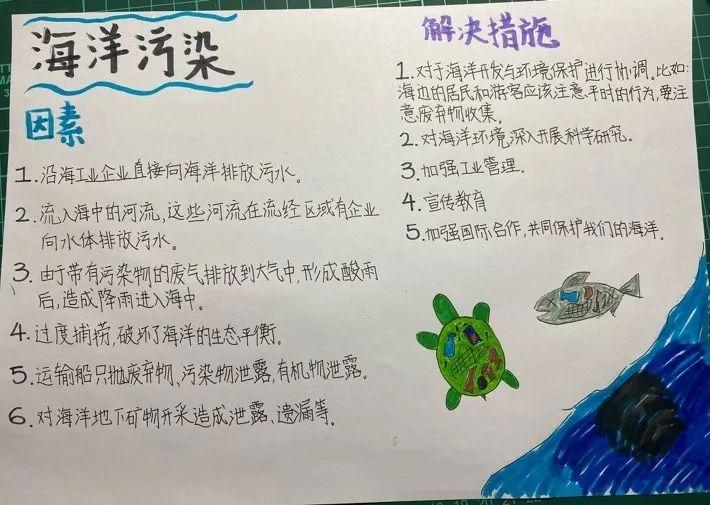 海洋污染
因素
1.沿海工业企业直接向海洋排放污水。
2.流入海中的河流,这些河流在流经区域有企业
向水体排放污水。
3.由于带有污染物的废气排放到大气中,形成酸雨
后,造成降雨进入海中。
4.过度捕捞,破坏了海洋的生态平衡。
5.运输船只抛废弃物、污染物泄露,有机物泄露。
6.对海洋地下矿物开采造成泄露、遗漏等。
解决措施
1.对于海洋开发与环境保护进行协调。比如:
海边的居民和游客应该注意平时的行为,要注
意废弃物收集。
2.对海洋环境深入开展科学研究。
3.加强工业管理。
4.宣传教育
5.加强国际合作,共同保护我们的海洋。